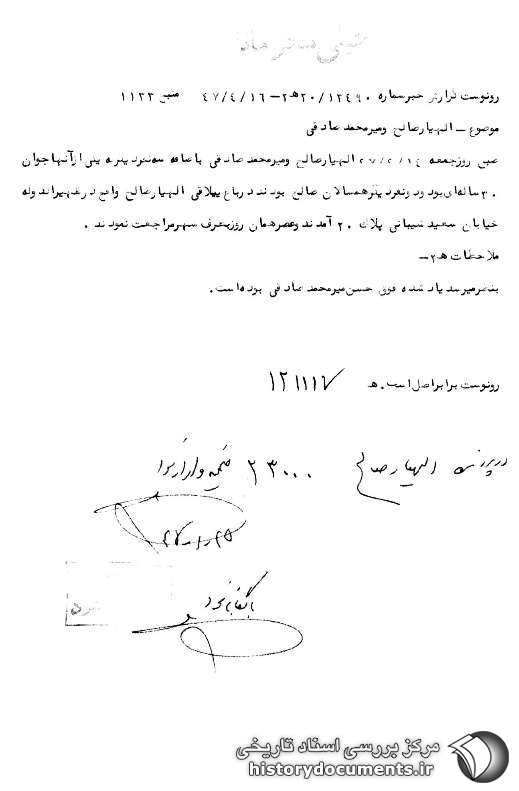 خیلی محرمانه
رونوشت گزارش خبر شماره ۲۰/۱۲۴۹۰ ه‍۲ – ۴۷/۴/۱۶ منبع ۱۱۲۳
موضوع – الهیار صالح و میرمحمد صادقی
صبح روز جمعه ۴۷/۲/۱۴ الهیار صالح و میرمحمد صادقی باضافه سه نفر دیگر که یکی از آنها جوان
۳۰ ساله‌ای بود و دو نفر دیگر همسالان صالح بودند در باغ ییلاقی الهیار صالح واقع در
خیابان سعید شیبانی پلاک ۲۰ آمدند و عصر همان روز بطرف شهر مراجعت نمودند .
ملاحظات ه‍۲ –
بنظر میرسد یاد شده فوق حسن میرمحمد صادقی بوده است .
رونوشت برابر اصل است . ه‍
در پرونده الهیار صالح ۲۳۰۰۰ ضمیمه و
بایگانی شود
مرکز بررسی اسناد تاریخی
historydocuments.ir